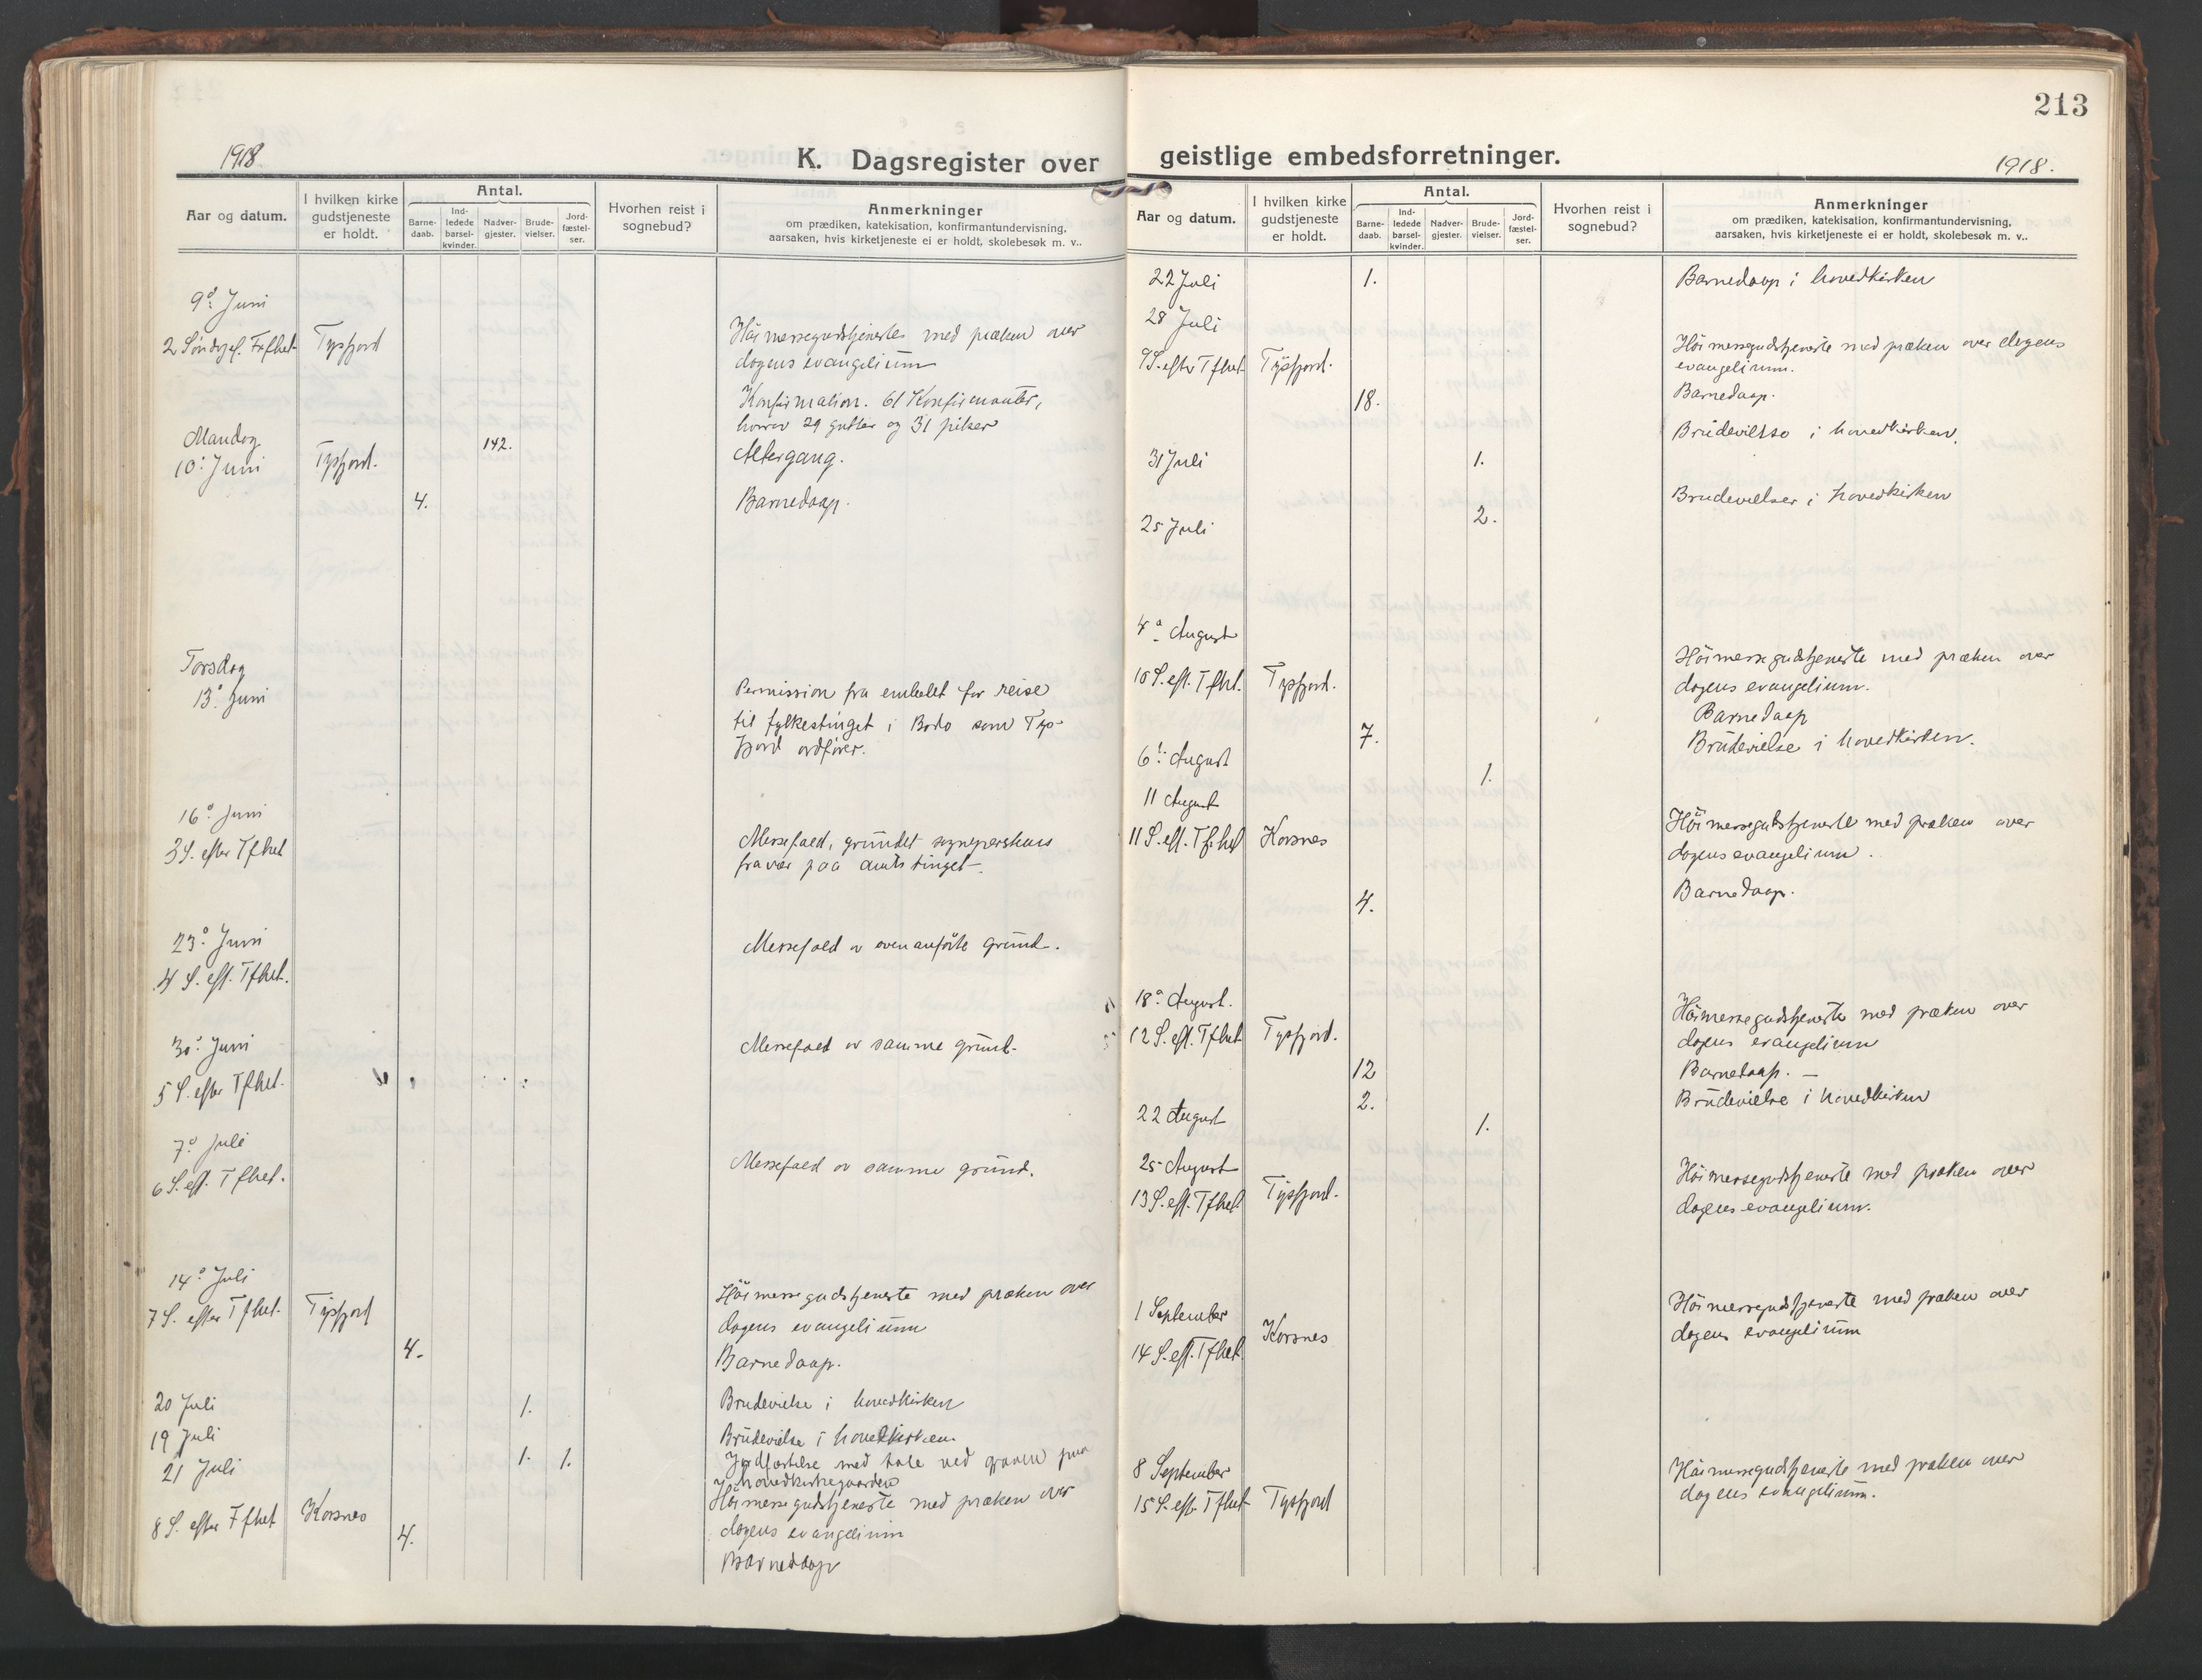 1918
K. Dagsregister over
Aar og datum.
I hvilken kirke
gudstjeneste
er holdt.
Antal.
Barne-
daab.
Ind-
ledede
barsel-
kvinder.
Nadver-
gjester.
Brude-
vielser.
Jord-
fæstel-
ser.
Hvorhen reist i
sognebud?
Anmerkninger
om prædiken, katekisation, konfirmantundervisning,
aarsaken, hvis kirketjeneste ei er holdt, skolebesøk m. v..
9de Juni
2 Söndag ef. Trfhet. Tysfjord Höimessegudstjeneste med præken over
dagens evangelium
Konfirmation. 61 Konfirmanter,
hvorav 29 gutter og 31 piker
Mandag
10: Juni Tysfjord. 142. Altergang.
4. Barnedaap.
Torsdag
13: Juni Permission fra embedet for reise
til fylkestinget i Bodo som Tys-
fjord ordfører.
16: Juni
3 S. efter Tfhet Messefald, grundet sogneprestens
fravær paa amtstinget.
23: Juni
4 S. eft. Tfhet. Messefald av ovenanförte grund.
30: Juni
5 S. efter Tfhet. Messefald av samme grund.
7: Juli
6 S. eft. Tfhet. Messefald av samme grund.
14: Juli
7 S. efter Tfhet. Tysfjord Höimessegudstjeneste med præken over
dagens evangelium
4. Barnedaap.
20 Juli 1. Brudevielse i hovedkirken
19 Juli Brudevielse i hovedkirken
21 Juli 1. 1. Jordfæstelse med tale ved graven paa
hovedkirkegaarden
8 S. efter Tfhet Korsnes Höimessegudstjeneste med præken over
4. dagens evangelium
Barnedaap
213
geistlige embedsforretninger.
1918.
Aar og datum.
I hvilken kirke
gudstjeneste
er holdt.
Antal.
Barne-
daab.
Ind-
ledede
barsel-
kvinder.
Nadver-
gjester.
Brude-
vielser.
Jord-
fæstel-
ser.
Hvorhen reist i
sognebud?
Anmerkninger
om prædiken, katekisation, konfirmantundervisning,
aarsaken, hvis kirketjeneste ei er holdt, skolebesøk m. v..
22 Juli 1. Barnedaap i hovedkirken
28 Juli
9 S. efter Tfhet Tysfjord. Höimessegudstjeneste med præken over dagens
evangelium.
18. Barnedaap.
31 Juli 1. Brudevielse i hovedkirken.
25 Juli 2. Brudevielser i hovedkirken
4: August
10 S. eft. Tfhet. Tysfjord. Höimessegudstjeneste med præken over
dagens evangelium.
7. Barnedaap
6: August 1. Brudevielse i hovedkirken.
11 August
11 S. eft. Tfhet Korsnes Höimessegudstjeneste med præken over
dagens evangelium.
4. Barnedaap.
18: August.
12 S. eft. Tfhet Tysfjord. Höimessegudstjeneste med præken over
dagens evangelium
12 Barnedaap. —
2.
22 August 1. Brudevielse i hovedkirken
25 August
13 S. eft. Tfhet. Tysfjord. Höimessegudstjeneste med præken over
dagens evangelium.
1 September
14 S. eft. Tfhet. Korsnes Höimessegudstjeneste med præken over
dagens evangelium
8 September
15 S. eft. Tfhet Tysfjord Höimessegudstjeneste med præken over
dagens evangelium.